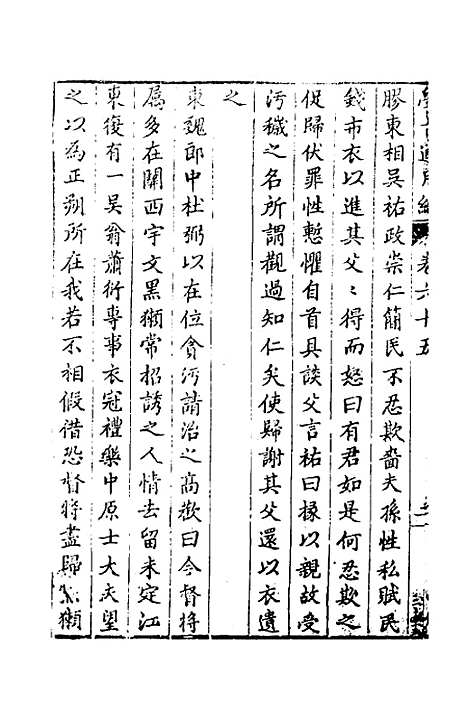 卷六十五
膠東相吳祐政崇仁簡民不忍欺嗇夫孫性私賦民
錢市衣以進其父〻得而怒曰有君如是何忍欺之
促歸伏罪性慙懼自首具談父言祐曰掾以親故受
汚穢之名所謂觀過知仁矣使歸謝其父還以衣遺
之
東魏郎中杜弼以在位貪汚請治之高歡曰今督将
属多在關西宇文黒獺常招誘之人情去留未定江
東復有一吳翁蕭衍專事衣冠禮樂中原士大夫望
之以為正朔所在我若不相假借恐督将盡歸黒獺